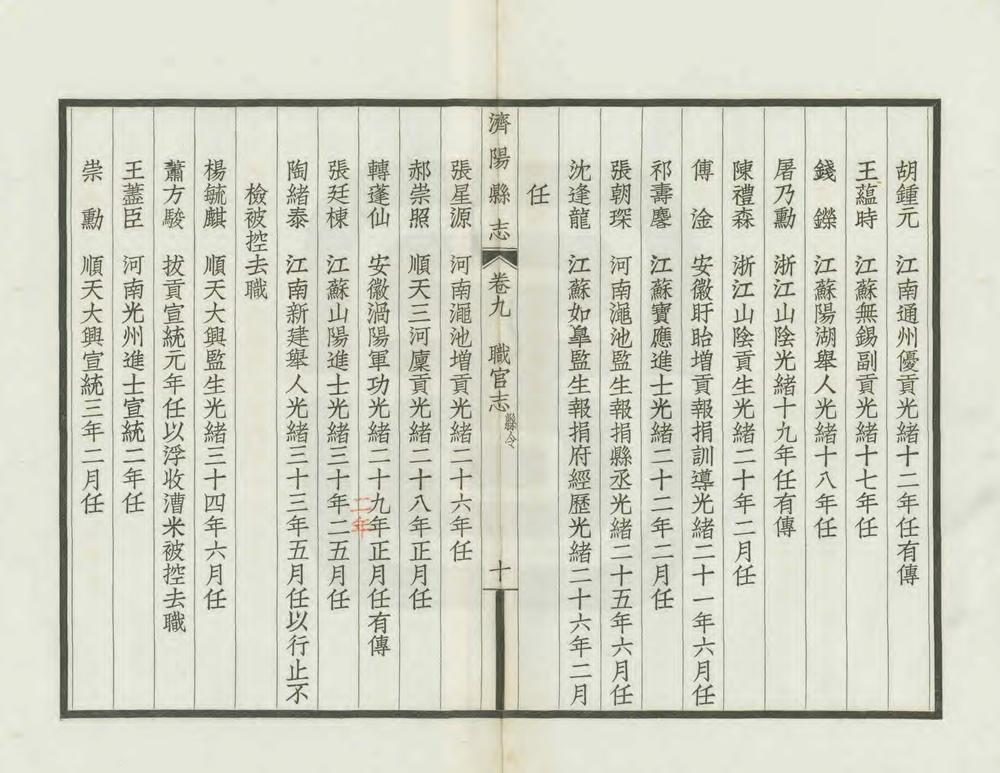 胡鍾元　江南通州優貢光緒十二年任有傳
王藴時　江蘇無錫副貢光緒十七年任
錢鑅　江蘇陽湖舉人光緒十八年任
屠乃勳　浙江山陰光緒十九年任有傳
陳禮森　浙江山陰貢生光緒二十年二月任
傅淦　安徽盱眙增貢報捐訓導光緒二十一年六月任
祁壽麐　江蘇寶應進士光緒二十二年二月任
張朝琛　河南澠池監生報捐縣丞光緒二十五年六月任
沈逢龍　江蘇如臯監生報捐府經歷光緒二十六年二月
任
濟陽縣志　卷九　職官志　縣令　十
張星源　河南澠池增貢光緒二十六年任
郝崇照　順天三河廩貢光緒二十八年正月任
轉蓬仙　安徽渦陽軍功光緒二十九年正月任有傳
二年
張廷棟　江蘇山陽進士光緒三十年二五月任
陶緒泰　江南新建舉人光緒三十三年五月任以行止不
檢被控去職
楊毓麒　順天大興監生光緒三十四年六月任
蕭方駿　拔貢宣統元年任以浮收漕米被控去職
王藎臣　河南光州進士宣統二年任
崇勳　順天大興宣統三年二月任